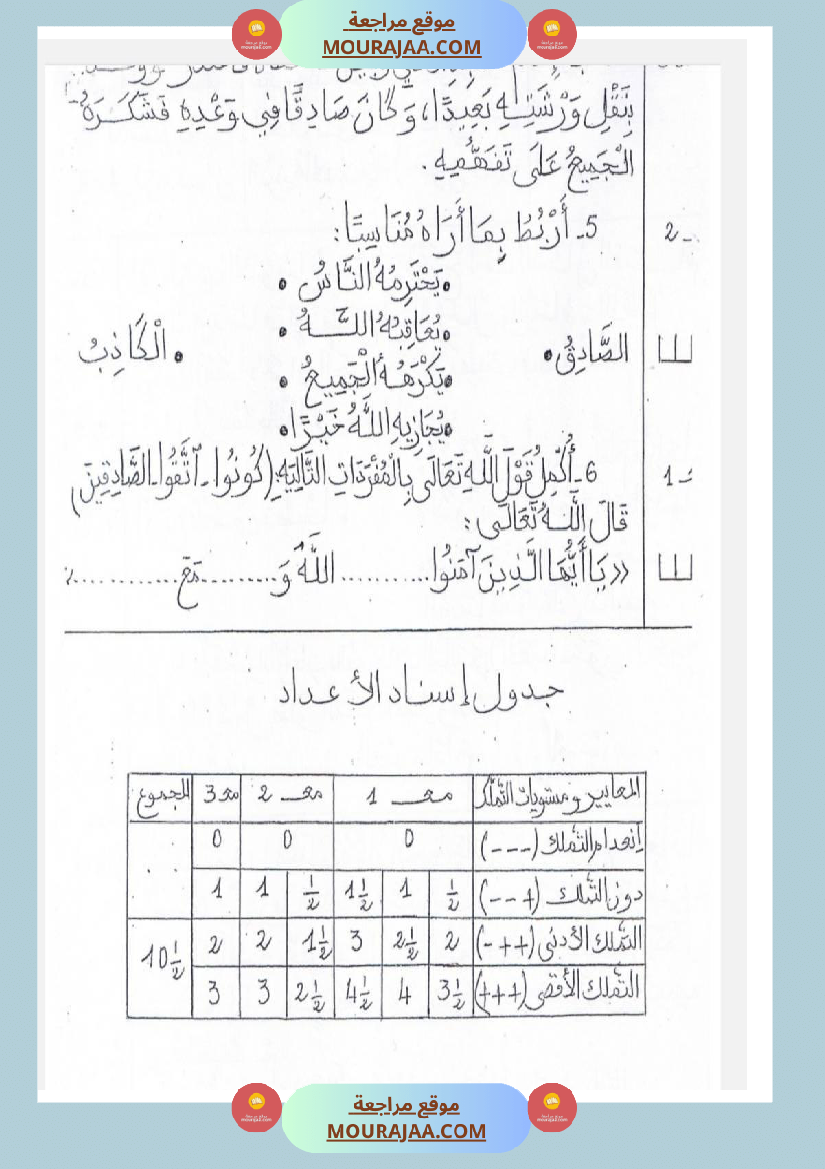 موقع مراجعة
MOURAJAA.COM
بِنَقْلِ وَرْشَتِهِ بَعِيدًا، وَكَانَ صَادِقًا فِي وَعْدِهِ فَشَكَرَهُ
الْجَمِيعُ عَلَى تَفَهُّمِهِ.
5ـ أَرْبُطُ بِمَا أَرَاهُ مُنَاسِبًا: 2ـ
• يَحْتَرِمُهُ النَّاسُ •
• يُعَاقِبُهُ اللَّهُ •
الصَّادِقُ • • الْكَاذِبُ
• يَكْرَهُهُ الْجَمِيعُ •
• يُجَازِيهِ اللَّهُ خَيْرًا •
6ـ أُكْمِلُ قَوْلَ اللَّهِ تَعَالَى بِالْمُفْرَدَاتِ التَّالِيَةِ: (كُونُوا ـ اتَّقُوا ـ الصَّادِقِينَ) 1ـ
قَالَ اللَّهُ تَعَالَى:
«يَا أَيُّهَا الَّذِينَ آمَنُوا .......... اللَّهَ وَ .......... مَعَ ............
جدول إسناد الأعداد
المعايير ومستويات التملك مع 1 مع 2 مع 3 المجموع
إنعدام التملك (---) 0 0 0
دون التملك (+--) ½ 1 1½ ½ 1 1
التملك الأدنى (++-) 2 2½ 3 1½ 2 2 10½
التملك الأقصى (+++) 3½ 4 4½ 2½ 3 3
موقع مراجعة
MOURAJAA.COM